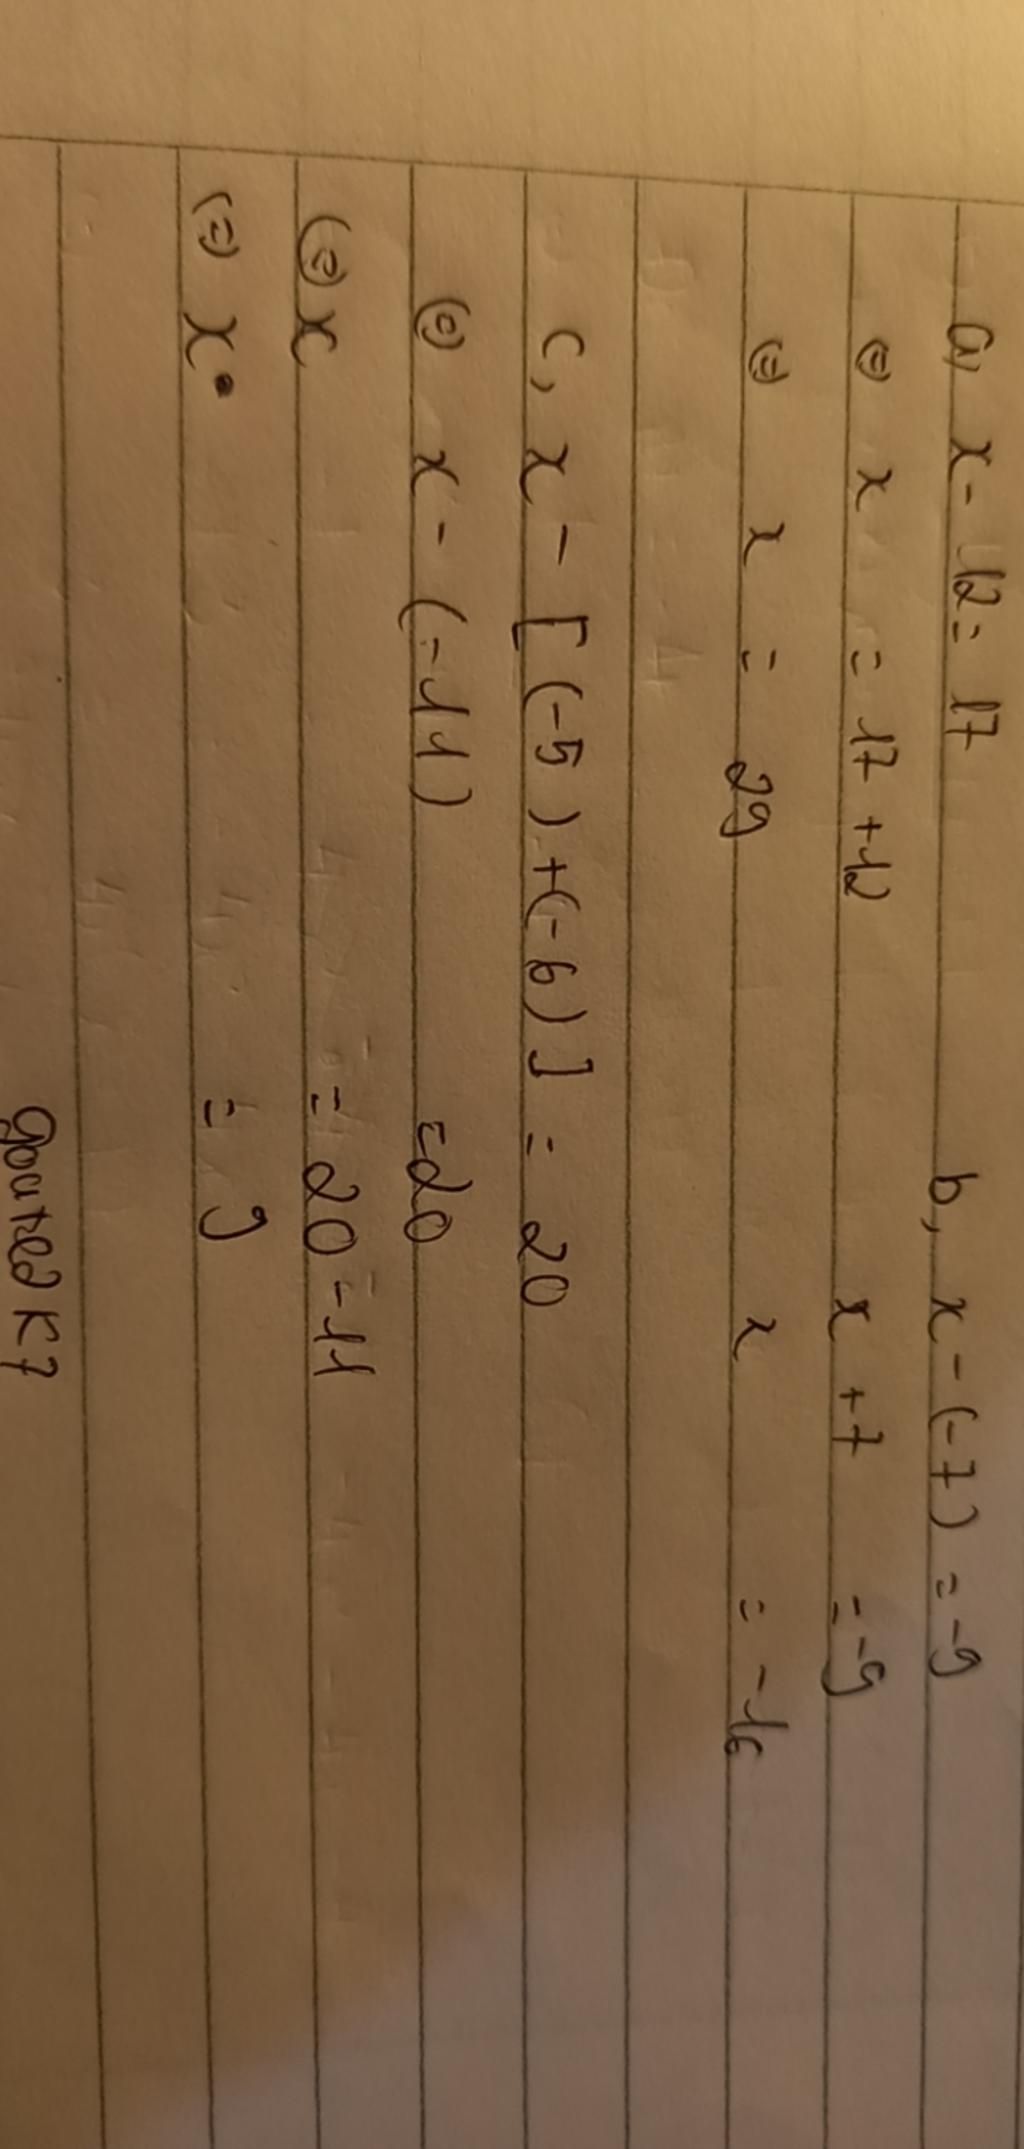 a, x - 12 = 17
(=) x = 17 + 12
(=) x = 29
b, x - (-7) = -9
x + 7 = -9
x = -16
c, x - [(-5) + (-6)] = 20
(=) x - (-11) = 20
(=) x = 20 - 11
(=) x = 9
goated K7